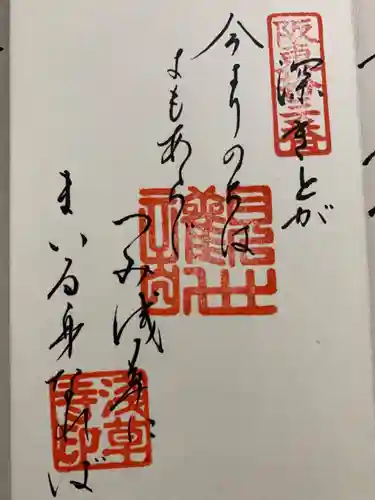 阪東十三番
深きとが
今よりのちは
よもあらじ
つみ浅草に
まいる身なれば
浅草
寺印